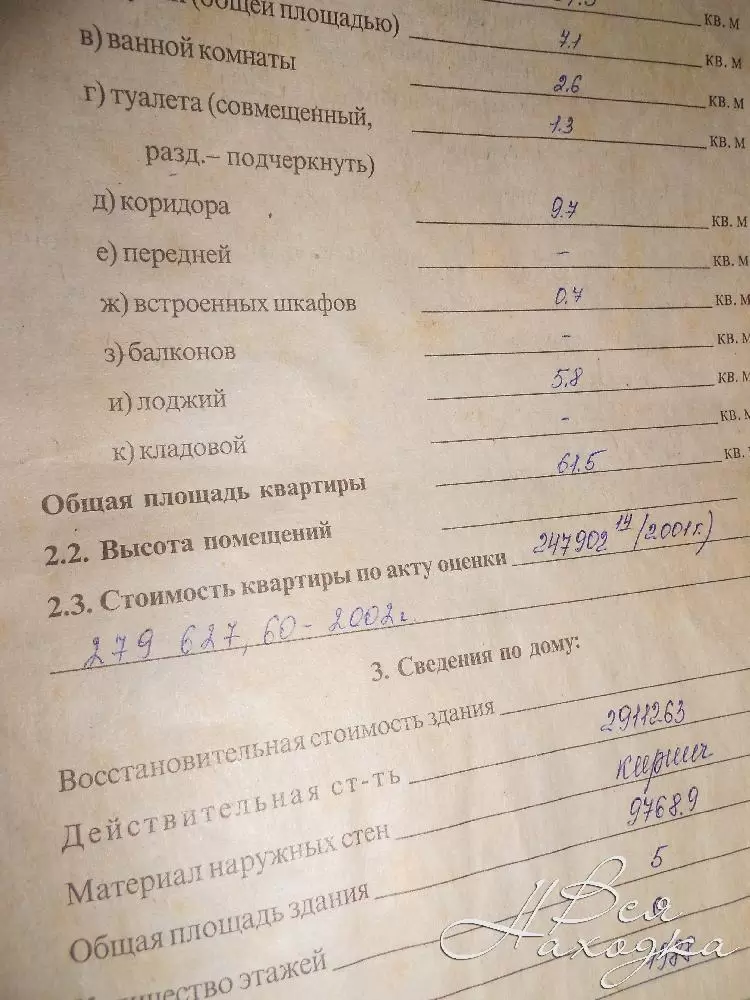 (общей площадью) кв. м
в) ванной комнаты 7.1 кв. м
г) туалета (совмещенный, 2.6 кв. м
разд.– подчеркнуть) 1.3 кв. м
д) коридора 9.7 кв. м
е) передней – кв. м
ж) встроенных шкафов 0.7 кв. м
з) балконов – кв. м
и) лоджий 5.8 кв. м
к) кладовой – кв. м
Общая площадь квартиры 61.5 кв.
2.2. Высота помещений
2.3. Стоимость квартиры по акту оценки 247902 14 (2001г.)
279 627,60 - 2002г.
3. Сведения по дому:
Восстановительная стоимость здания
Действительная ст-ть 2911263
Материал наружных стен кирпич
Общая площадь здания 9768.9
этажей 5
Вся Находка